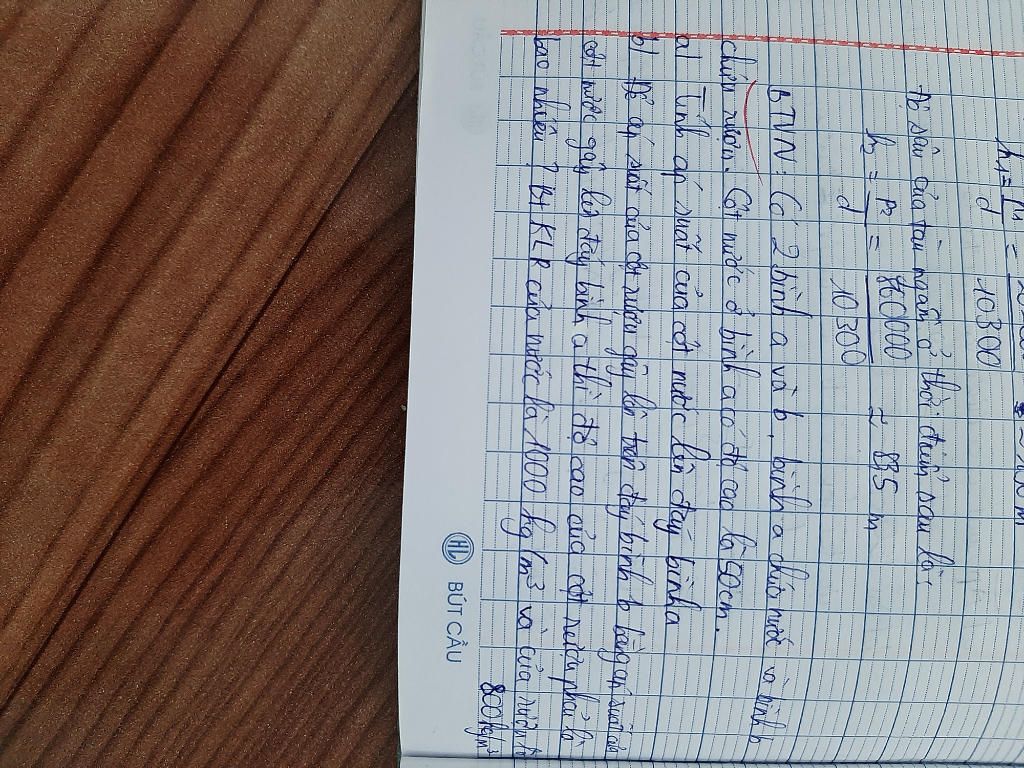 h₁ = p₁/d = /10300 m
Độ sâu của tàu ngầm ở thời điểm sau là:
h₂ = p₂/d = 860000/10300 ≈ 83,5 m
BTVN: Có 2 bình a và b, bình a chứa nước và bình b
chứa rượu. Cột nước ở bình a có độ cao là 50cm.
a) Tính áp suất của cột nước lên đáy bình a
b) Để áp suất của cột rượu gây lên trên đáy bình b bằng áp suất của
cột nước gây lên đáy bình a thì độ cao của cột rượu phải là
bao nhiêu? Bt KLR của nước là 1000 kg/m³ và của rượu là
800kg/m³
HL BÚT CẦU